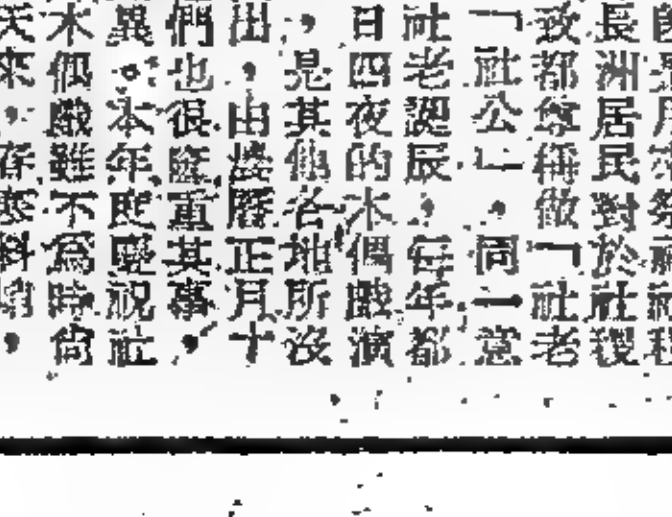 長洲居民對於社稷
致都尊稱做「社老
「社公」，同一意
社老誕辰，每年都
日四夜的木偶戲演
，是其他各地所沒
出，由農曆正月十
們也很隆重其事，
異。本年慶祝社
木偶戲雖不為時尚